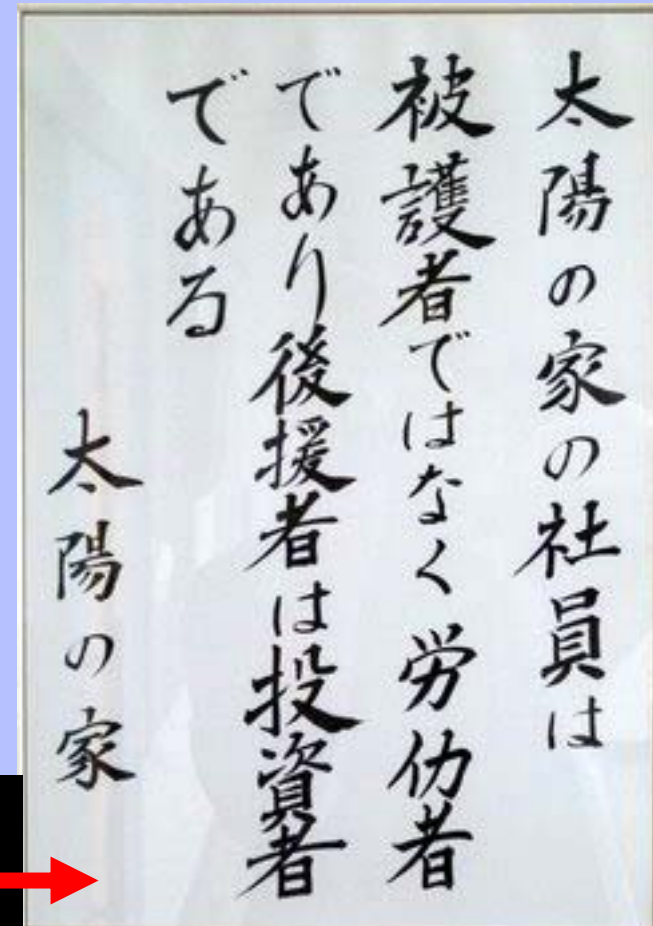 太陽の家の社員は
被護者ではなく労仂者
であり後援者は投資者
である
太陽の家